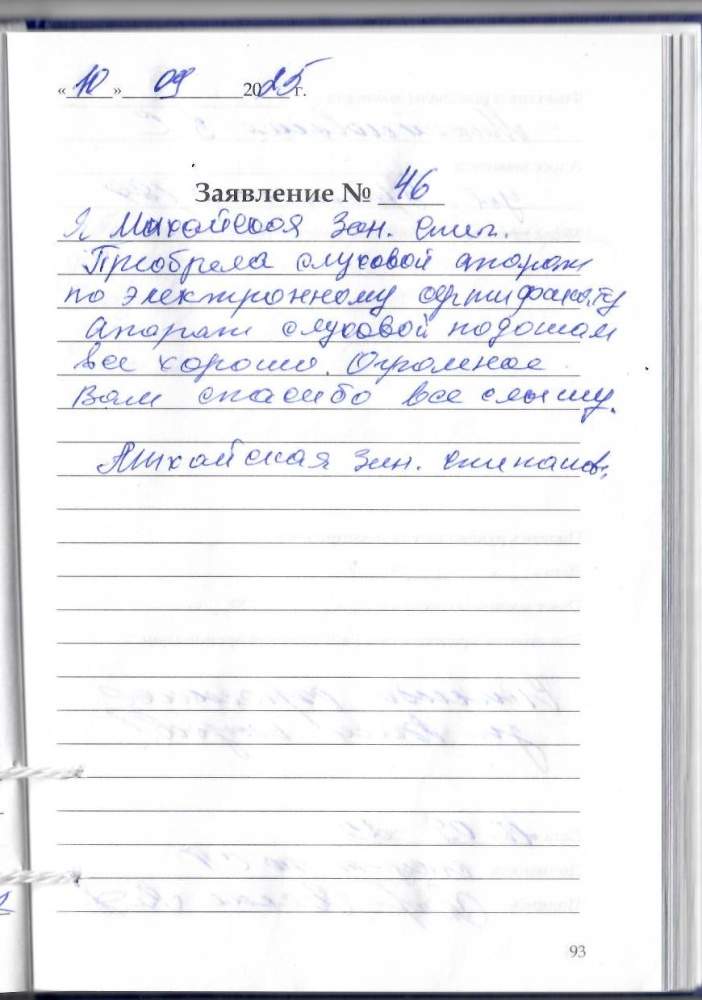 «10» 09 2025 г.
Заявление № 46
Я Михайской Зин. Степ.
Приобрела слуховой апарат
по электронному сертификату
Апарат слуховой подошол
все хорошо. Огромное
Вам спасибо все слышу.
Михайская Зин. Степанов.
93